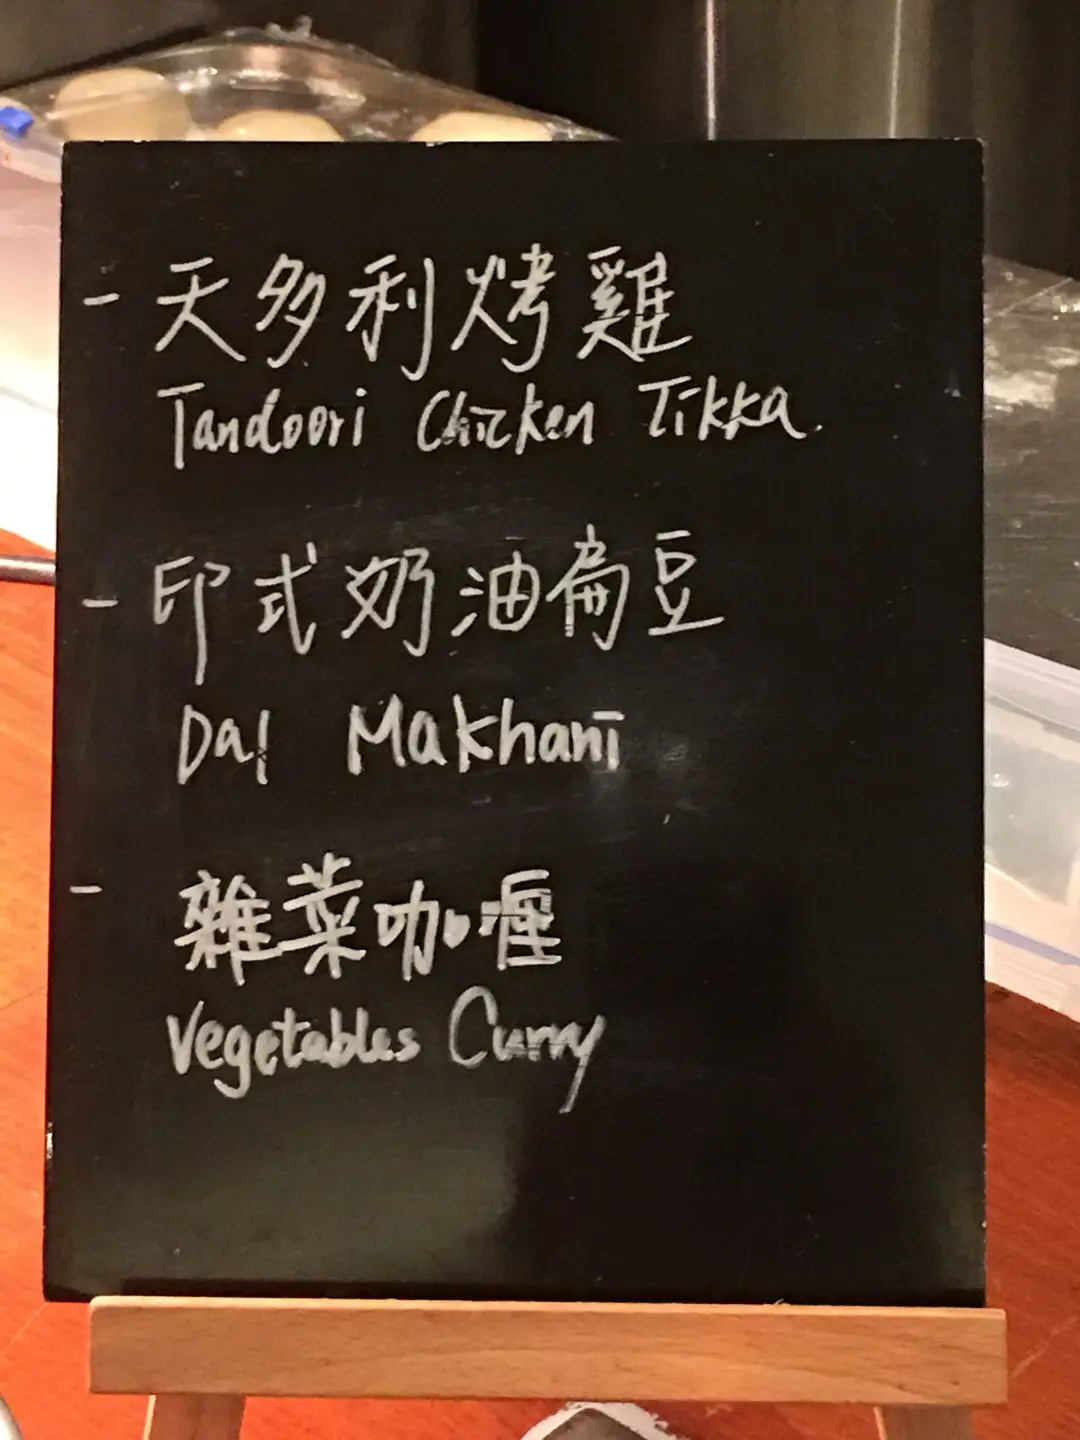 - 天多利烤雞
Tandoori Chicken Tikka.
- 印式奶油扁豆
Dal Makhani
- 雜菜咖喱
Vegetables Curry